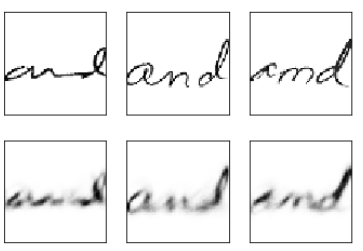 and and and
and and and